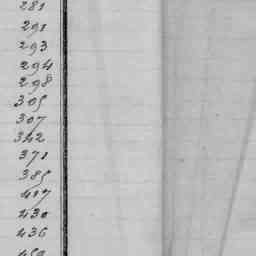 281
291
293
294
298
305
307
342
371
385
417
430
436